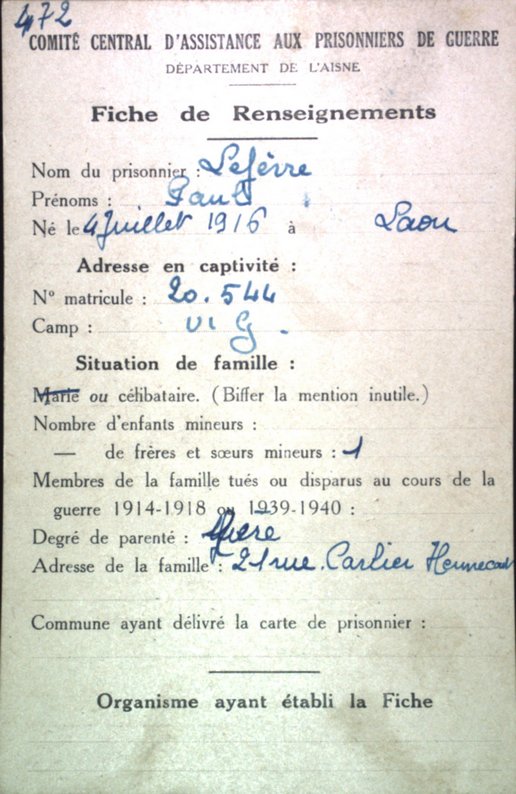 472
COMITÉ CENTRAL D'ASSISTANCE AUX PRISONNIERS DE GUERRE
DÉPARTEMENT DE L'AISNE
Fiche de Renseignements
Nom du prisonnier : Lefèvre
Prénoms : Paul
Né le 4 Juillet 1916 à Laon
Adresse en captivité :
N° matricule : 20.544
Camp : VI G.
Situation de famille :
Marié ou célibataire. (Biffer la mention inutile.)
Nombre d'enfants mineurs :
— de frères et sœurs mineurs : 1
Membres de la famille tués ou disparus au cours de la
guerre 1914-1918 ou 1939-1940 :
Degré de parenté :
Adresse de la famille : 21 rue. Carlier Hennecart
Commune ayant délivré la carte de prisonnier :
Organisme ayant établi la Fiche